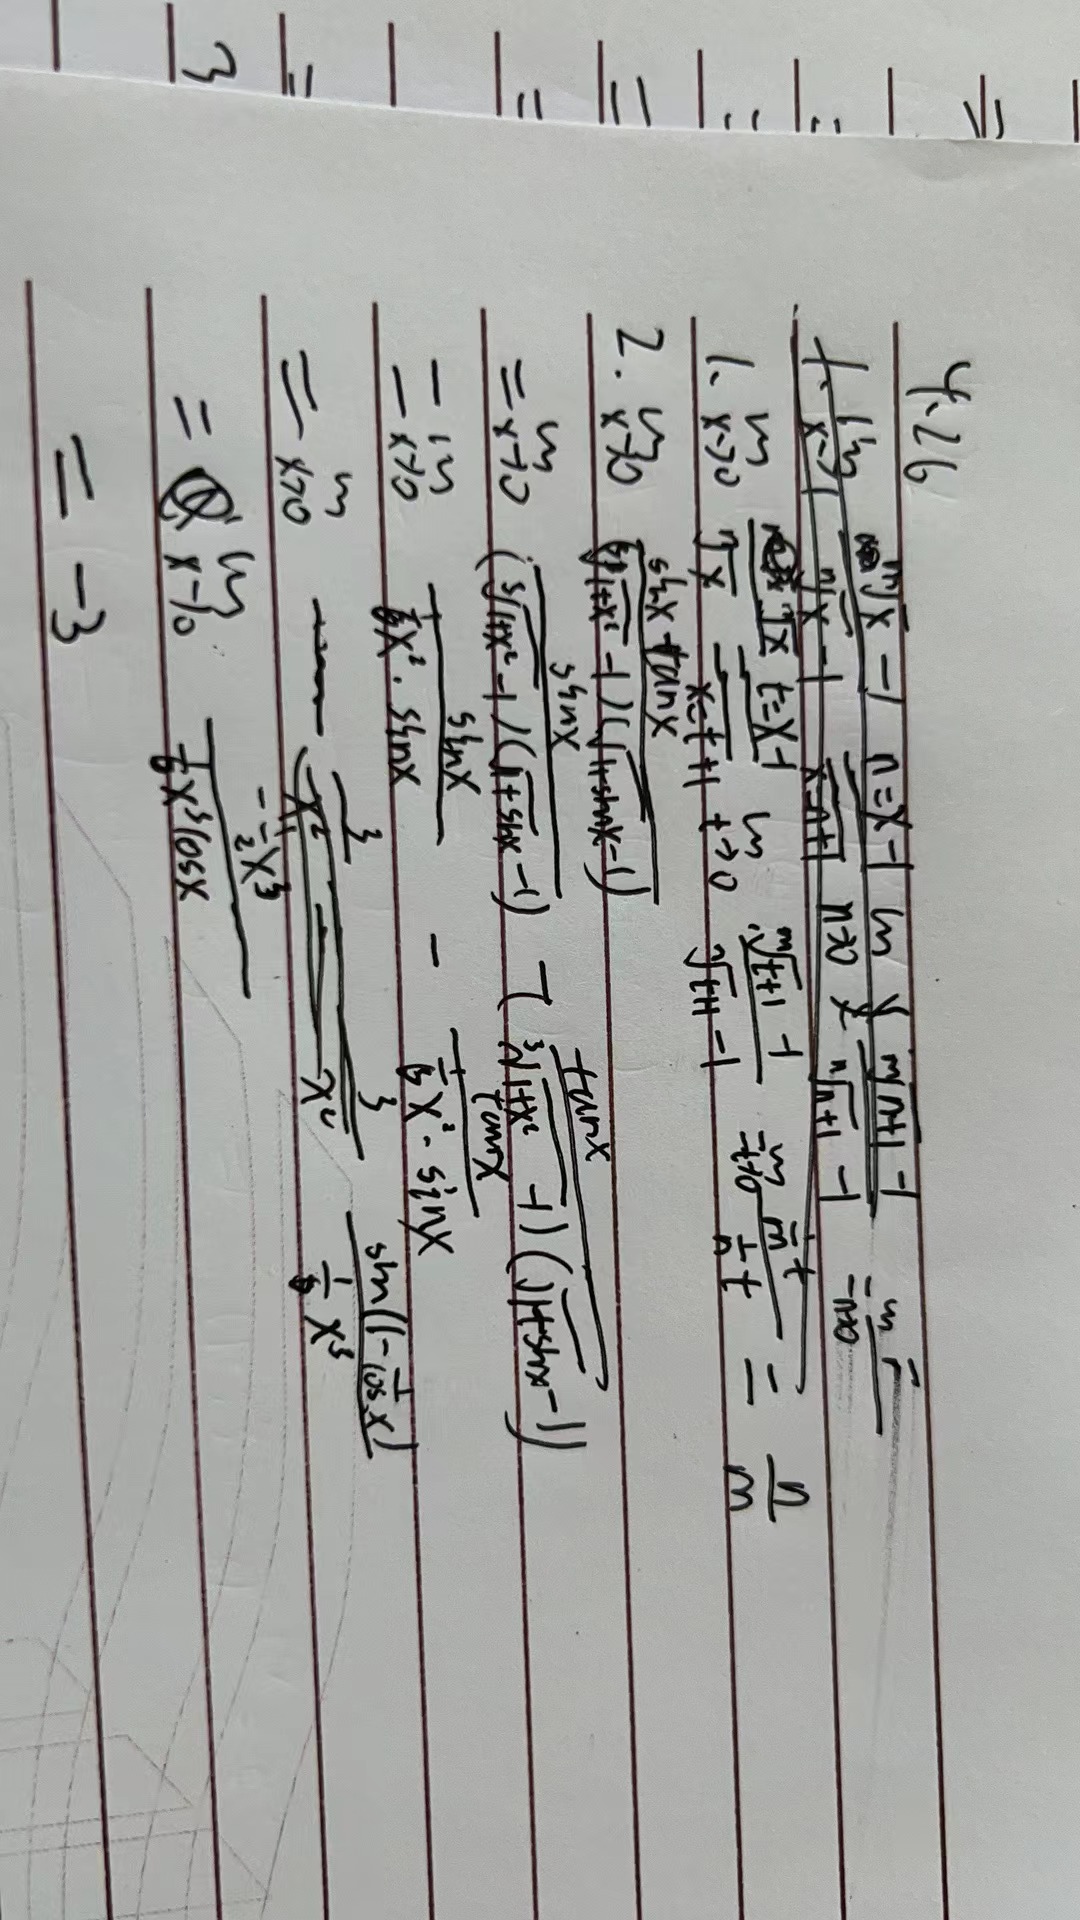 4.26
1. lim x→1 \frac{\sqrt[m]{x} - 1}{\sqrt[n]{x} - 1} \frac{n=x-1}{x=n+1} lim n→0 \frac{\sqrt[m]{n+1} - 1}{\sqrt[n]{n+1} - 1} = lim n→0
1. lim x→0 \frac{\sqrt{x}}{\sqrt[n]{x}} \frac{t=x-1}{x=t+1} lim t→0 \frac{\sqrt[m]{t+1} - 1}{\sqrt[n]{t+1} - 1} = lim t→0 \frac{\frac{1}{m}t}{\frac{1}{n}t} = \frac{n}{m}
2. lim x→0 \frac{sinx - tanx}{(\sqrt[3]{1+x^2} - 1)(\sqrt{1+sinx} - 1)}
= lim x→0 \frac{sinx}{(\sqrt[3]{1+x^2} - 1)(\sqrt{1+sinx} - 1)} - \frac{tanx}{(\sqrt[3]{1+x^2} - 1)(\sqrt{1+sinx} - 1)}
= lim x→0 \frac{sinx}{\frac{1}{6}x^2 · sinx} - \frac{tanx}{\frac{1}{6}x^2 · sinx}
= lim x→0 \frac{sin(1 - \frac{1}{cosx})}{\frac{1}{6}x^3}
= lim x→0 \frac{-\frac{1}{2}x^3}{\frac{1}{6}x^3cosx}
= -3